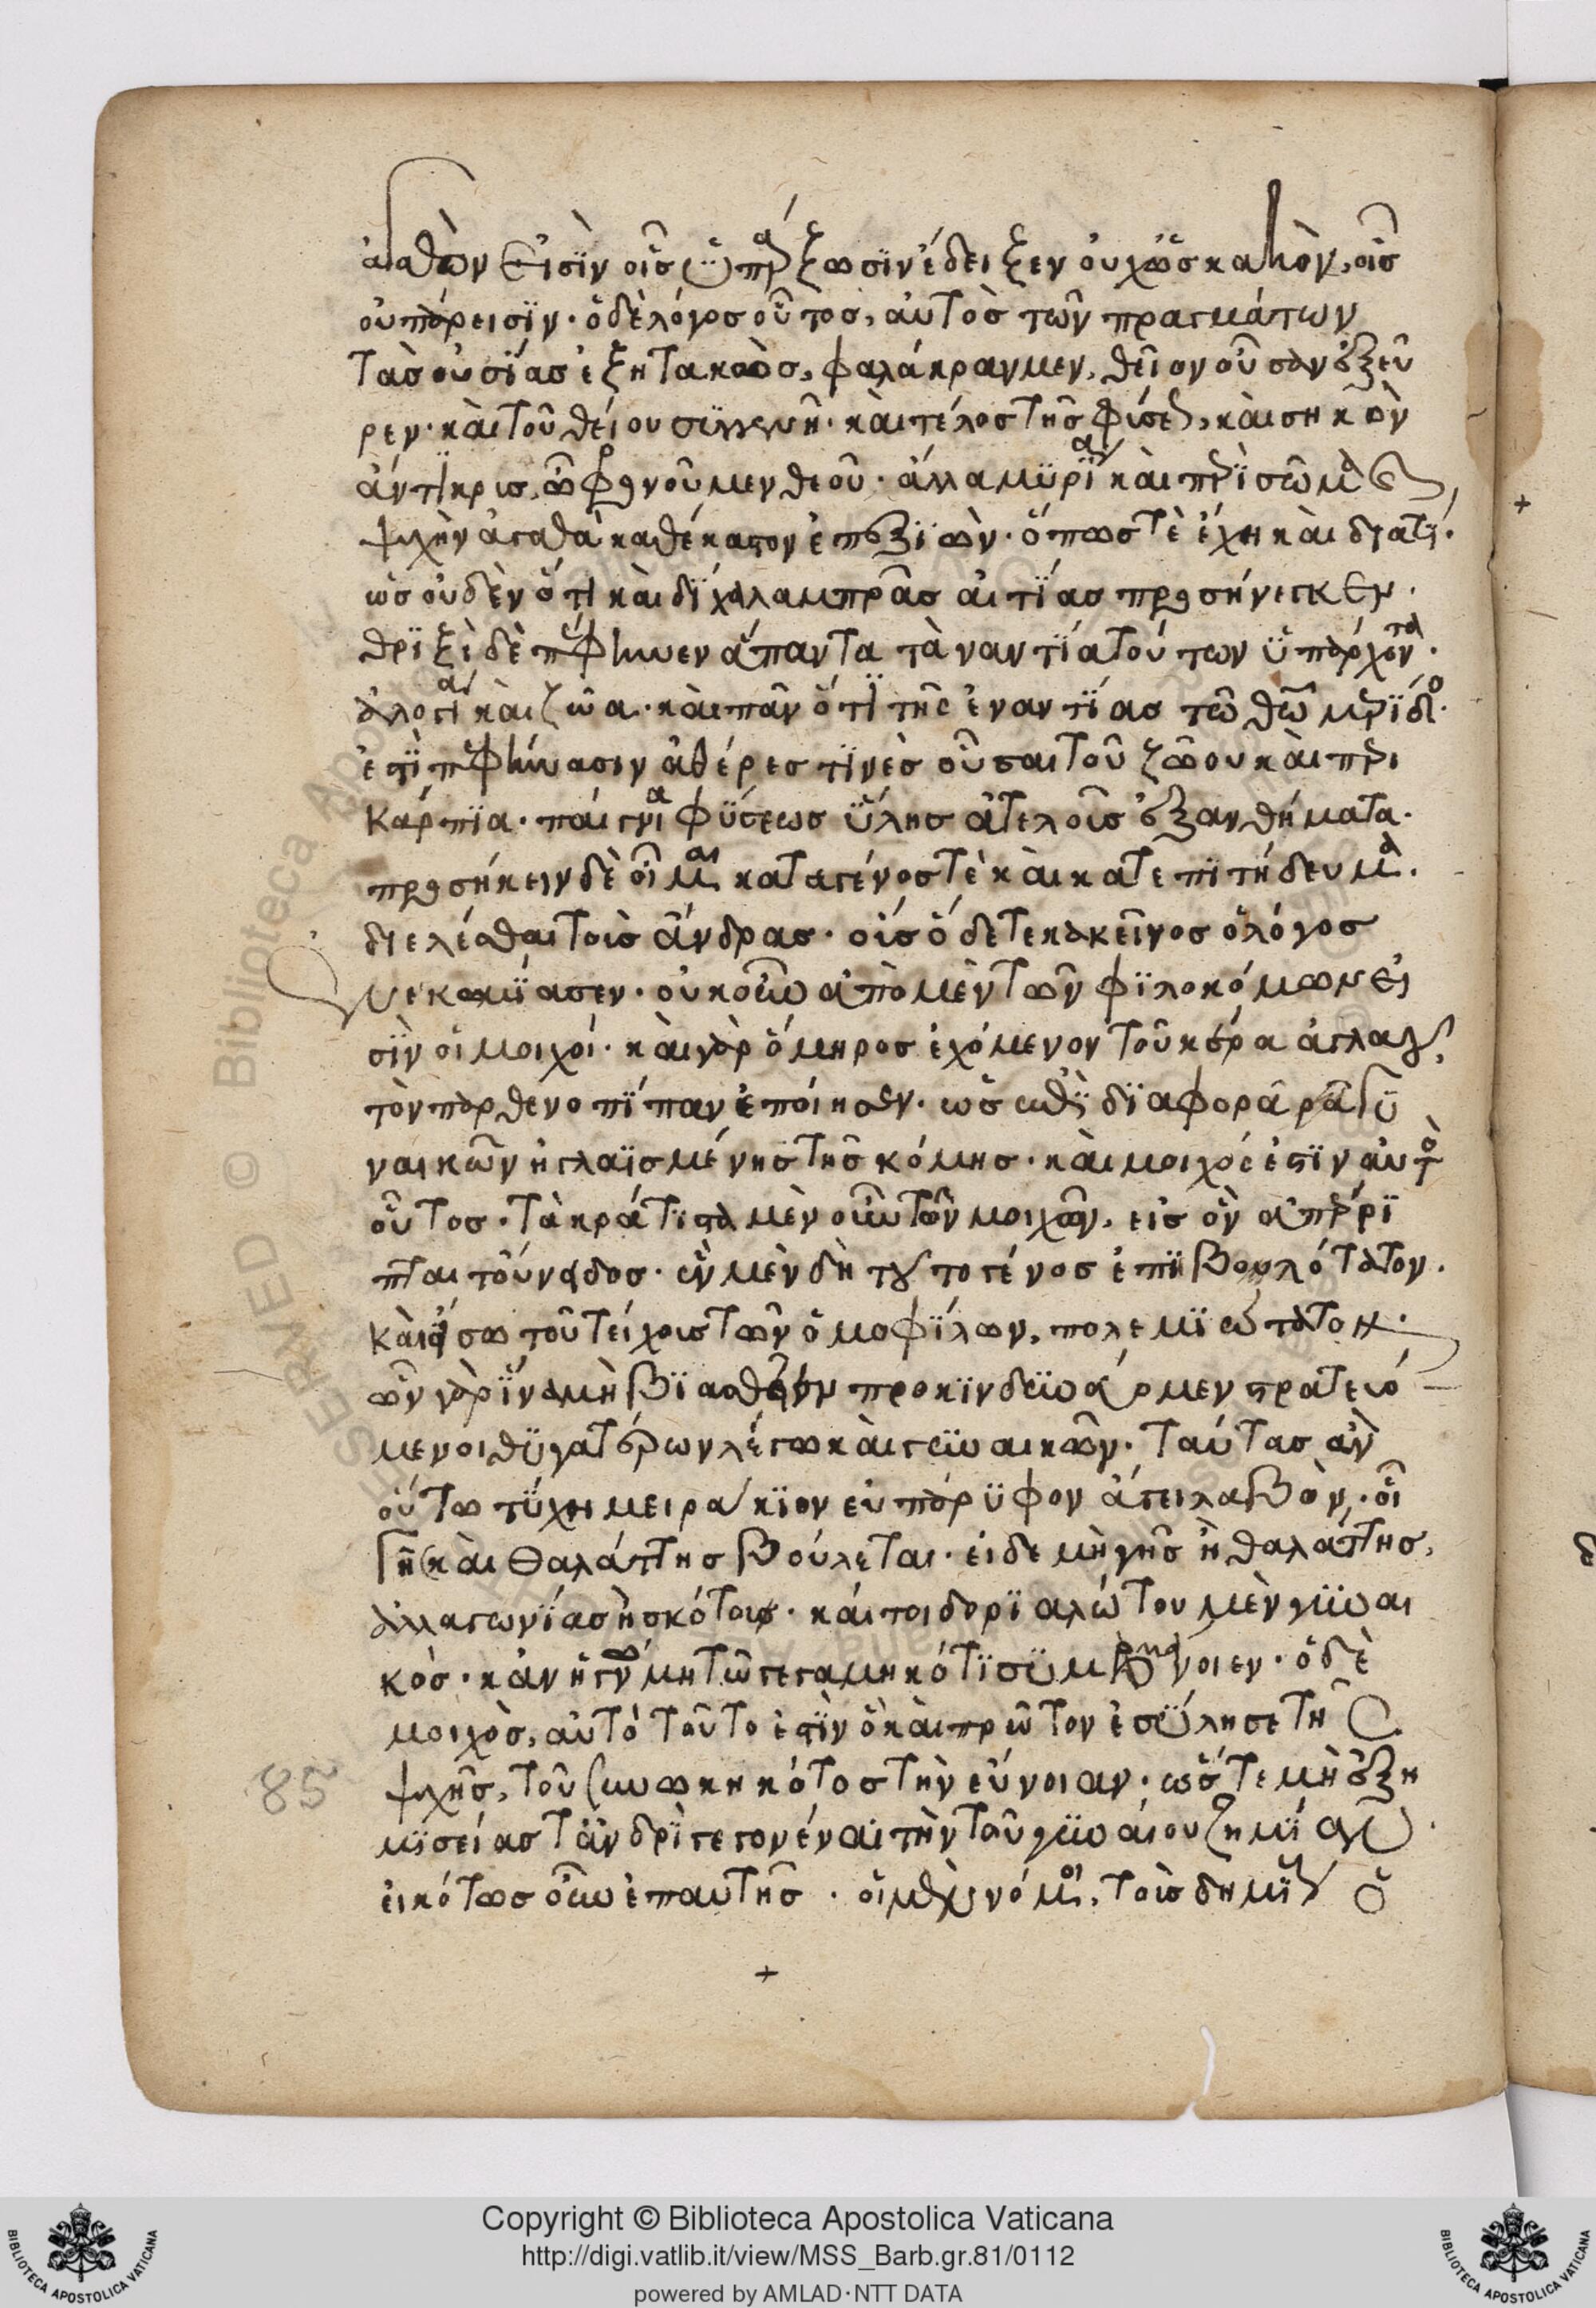 ἀγαθὸν εἰσὶν οἷς ὑπάρξωσιν ἔδειξεν οὐχ ὡς καλὸν, οἷς
οὐ πάρεισιν. ὁ δὲ λόγος οὗτος, αὐτὸς τῶν πραγμάτων
τὰς οὐσίας ἐξητακὼς, φαλάκραν μεν, θεῖον οὖσαν ἐξεῦ
ρεν. καὶ τοῦ θείου συγγενῆ. καὶ τέλος τῆς φύσεως, καὶ σηκὸν
ἄντικρις, ᾧ φρονοῦμεν θεοῦ. ἀλλα μυρία καὶ περὶ σῶμα καὶ
ψυχὴν ἀγαθὰ καθέκαστον ἐπεξιὼν. ὅπως τὲ ἔχει καὶ διατί.
ὡς οὐδὲν ὅτι καὶ δίχα λαμπρᾶς αἰτίας προσήνεγκεν.
θριξὶ δὲ πέφηνεν ἅπαντα τὰναντία τούτων ὑπάρχοντα.
ἀλογία καὶ ζῶα. καὶ πᾶν ὅτι τῆς ἐναντίας τῶ θεῶ μερίδος.
ἔτι πεφήνασιν ἀθέρες τινὲς οὖσαι τοῦ ζώου καὶ περι
κάρπια. παίγνια φύσεως ὕλης ἀτελοῦς ἐξανθήματα.
προσήκειν δὲ οἶμαι κατα γένος τὲ καὶ κατ επιτήδευμα.
διελέσθαι τοὺς ἄνδρας. οἷς ὅδε τε κακεῖνος ὁ λόγος
νεκωμίασεν. οὐκοῦν ἀπὸ μὲν τῶν φιλοκόμων εἰ
σὶν οἱ μοιχοί. καὶ γὰρ ὅμηρος ἐχόμενον τοῦ κέρα ἀγλαὸν,
τὸν παρθενοπίπαν ἐποίησεν. ὡς ἐπὶ διαφορᾶ ρᾶ γυ
ναικῶν ἠγλαϊσμένης τῆς κόμης. καὶ μοιχός ἐστιν αὐτὸ
οὗτος. τὰ κράτιστα μὲν οὖν τῶν μοιχῶν, εἰς ὃν ἀπέρρι
πται τοὔνειδος. ἓν μὲν δὴ τοῦτο γένος ἐπιβουλότατον.
καὶ εἴσω τοῦ τείχους τῶν ὁμοφίλων, πολεμιώτατον.
ὧν γὰρ ἵνα μὴ βιασθῶσιν προκινδυνεύομεν στρατευό
μενοι θυγατέρων λέγω καὶ γυναικῶν. ταύτας ἂν
οὕτω τύχη μειράκιον εὐπάρυφον ἄγει λαβὸν. οἷ
γῆς καὶ θαλάττης βούλεται. εἰ δε μὴ γῆς ἢ θαλάττης,
ἀλλα γωνίας ἢ σκότους. καίτοι δοριαλώτου μὲν γυναι
κὸς. κἂν ἡ γνώμη τῶ γεγαμηκότι συμπαραμένοιεν. ὁ δὲ
μοιχὸς, αὐτὸ τοῦτό ἐστιν ὃ καὶ πρῶτον ἐσύλησε τῆς
ψυχῆς, τοῦ συνωκηκότος τὴν εὔνοιαν. ὥστε μὴ ἐξ ἡ
μισείας τἀνδρὶ γεγονέναι τὴν τοῦ γυναίου ζημίαν.
εἰκότως οὖν ἐπ αυτῆς. οἱ μὲν νόμοι, τοὺς δημίους ὁ
+
85
Copyright © Biblioteca Apostolica Vaticana
http://digi.vatlib.it/view/MSS_Barb.gr.81/0112
powered by AMLAD·NTT DATA
BIBLIOTECA APOSTOLICA VATICANA
BIBLIOTECA APOSTOLICA VATICANA